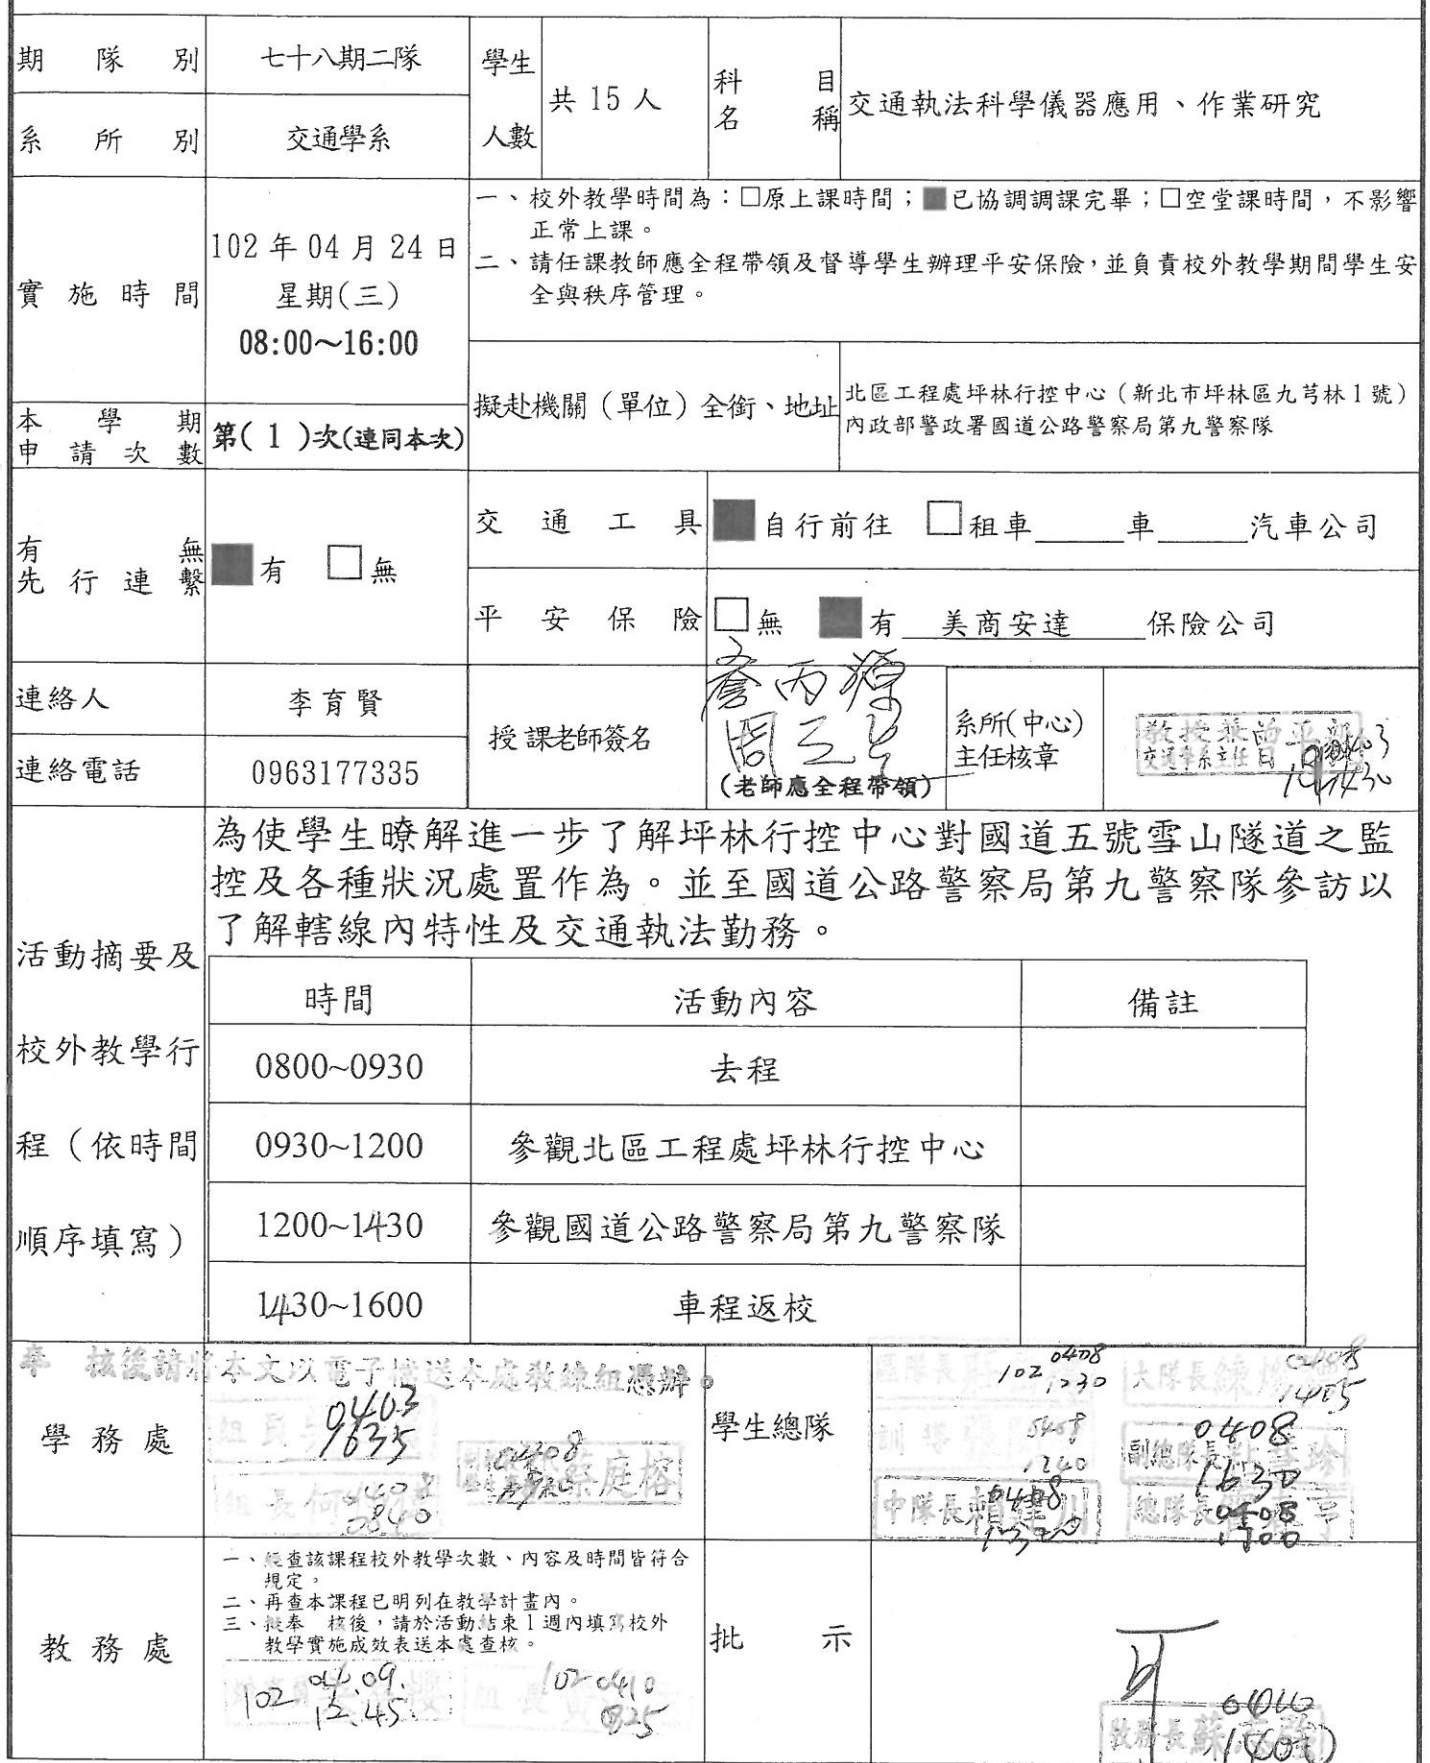 期隊別 七十八期二隊
系所別 交通學系
學生
人數
共 15 人
科目
名稱
交通執法科學儀器應用、作業研究
實施時間
102 年 04 月 24 日
星期(三)
08:00～16:00
一、校外教學時間為：□原上課時間；■已協調調課完畢；□空堂課時間，不影響
正常上課。
二、請任課教師應全程帶領及督導學生辦理平安保險，並負責校外教學期間學生安
全與秩序管理。
擬赴機關（單位）全銜、地址
北區工程處坪林行控中心（新北市坪林區九芎林1號）
內政部警政署國道公路警察局第九警察隊
本學期
申請次數
第( 1 )次(連同本次)
有無
先行連繫
■有 □無
交通工具 ■自行前往 □租車_____車_____汽車公司
平安保險 □無 ■有 美商安達 保險公司
連絡人 李育賢
連絡電話 0963177335
授課老師簽名
(老師應全程帶領)
系所(中心)
主任核章
交通學系主任
0403
1430
活動摘要及
校外教學行
程（依時間
順序填寫）
為使學生暸解進一步了解坪林行控中心對國道五號雪山隧道之監
控及各種狀況處置作為。並至國道公路警察局第九警察隊參訪以
了解轄線內特性及交通執法勤務。
時間 活動內容 備註
0800~0930 去程
0930~1200 參觀北區工程處坪林行控中心
1200~1430 參觀國道公路警察局第九警察隊
1430~1600 車程返校
奉 核後請將本文以電子檔送本處教練組憑辦。
學務處
0403
1635
組長何
0408
0840
學生總隊
102 0408
1230
大隊長
0408
1405
訓導
0408
1240
副總隊長
0408
1630
中隊長賴
0408
總隊長
0408
1700
教務處
一、經查該課程校外教學次數、內容及時間皆符合
規定。
二、再查本課程已明列在教學計畫內。
三、擬奉 核後，請於活動結束1週內填寫校外
教學實施成效表送本處查核。
102 04.09.
12.45.
組長
102 0410
0825
批示
可
教務長蘇
0410
1400